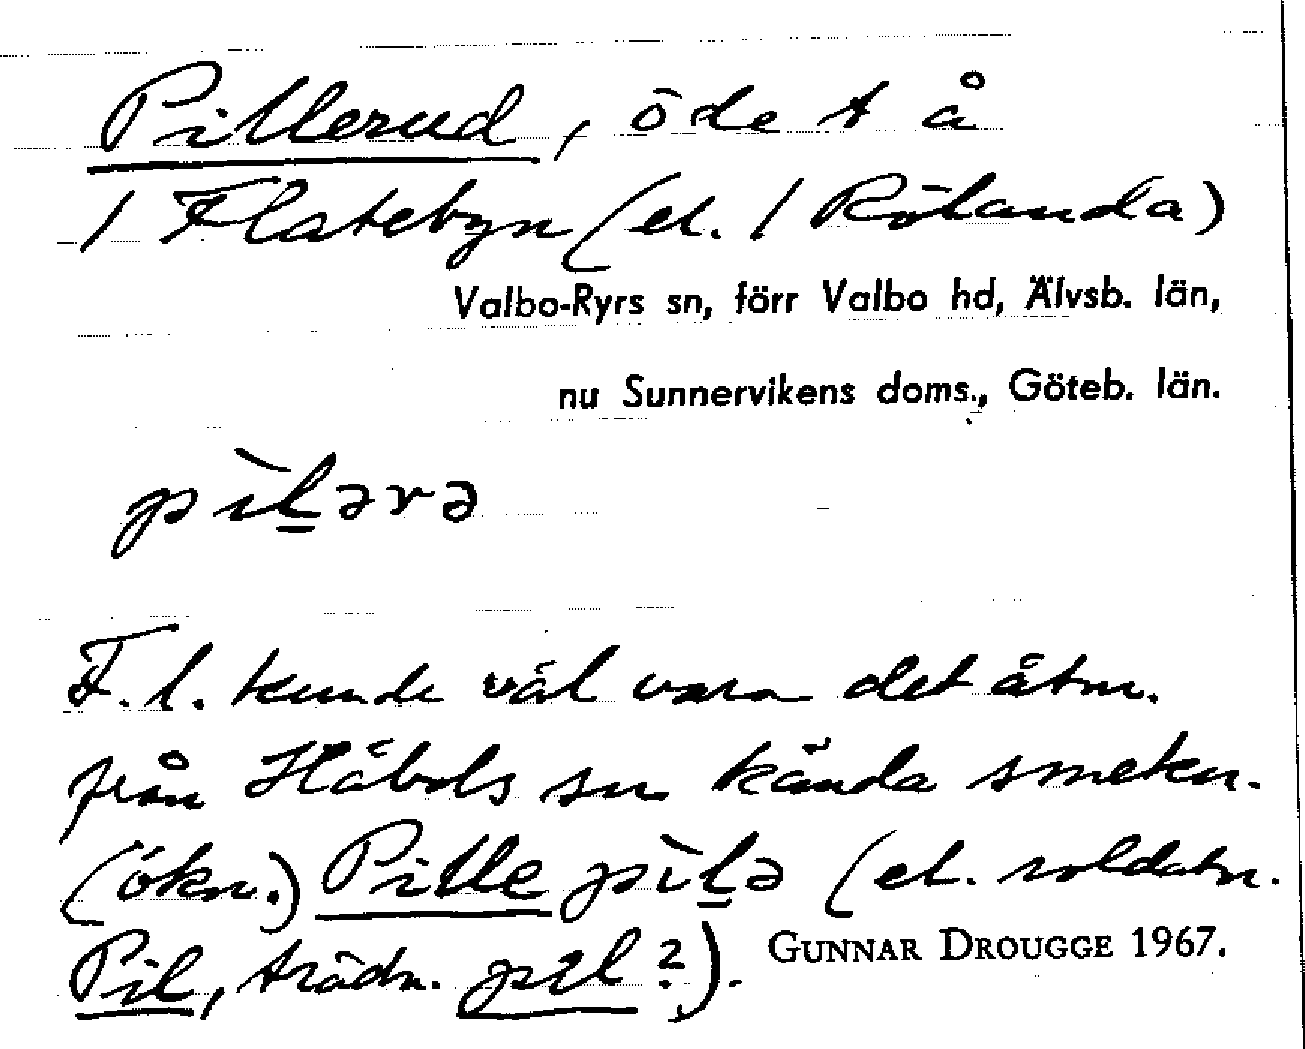 Pillerud, öde t å
1 Flatebyn (el. 1 Rölanda)
Valbo-Ryrs sn, förr Valbo hd, Älvsb. län,
nu Sunnervikens doms., Göteb. län.
pìl̲ərə
F.l. kunde väl vara det åtm.
från Håbols sn kända smekn.
(ökn.) Pille pìl̲ə (el. soldatn.
Pil, trädn. pil?).
GUNNAR DROUGGE 1967.